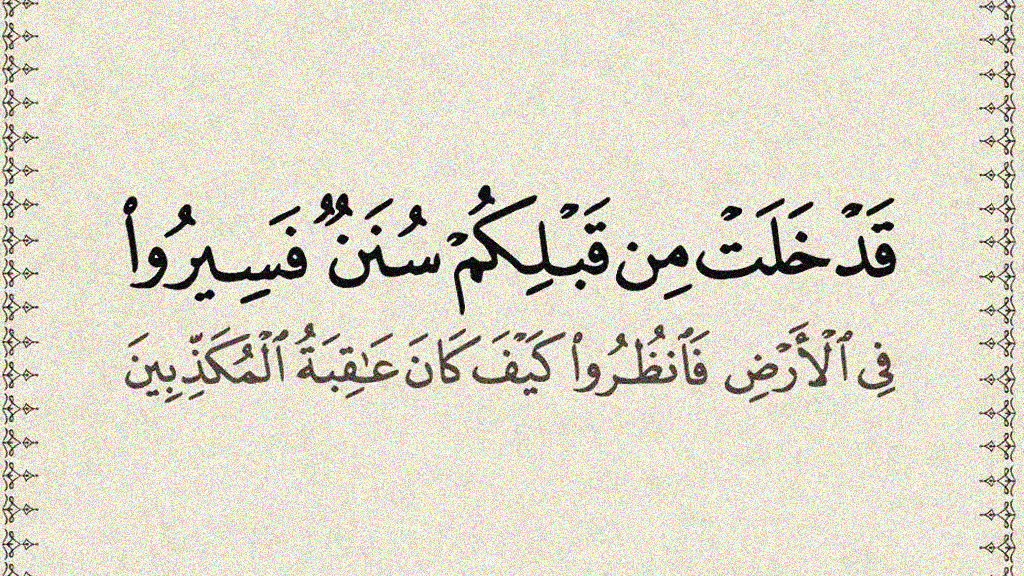 قَدْ خَلَتْ مِن قَبْلِكُمْ سُنَنٌ فَسِيرُوا۟
فِي ٱلْأَرْضِ فَٱنظُرُوا۟ كَيْفَ كَانَ عَـٰقِبَةُ ٱلْمُكَذِّبِينَ